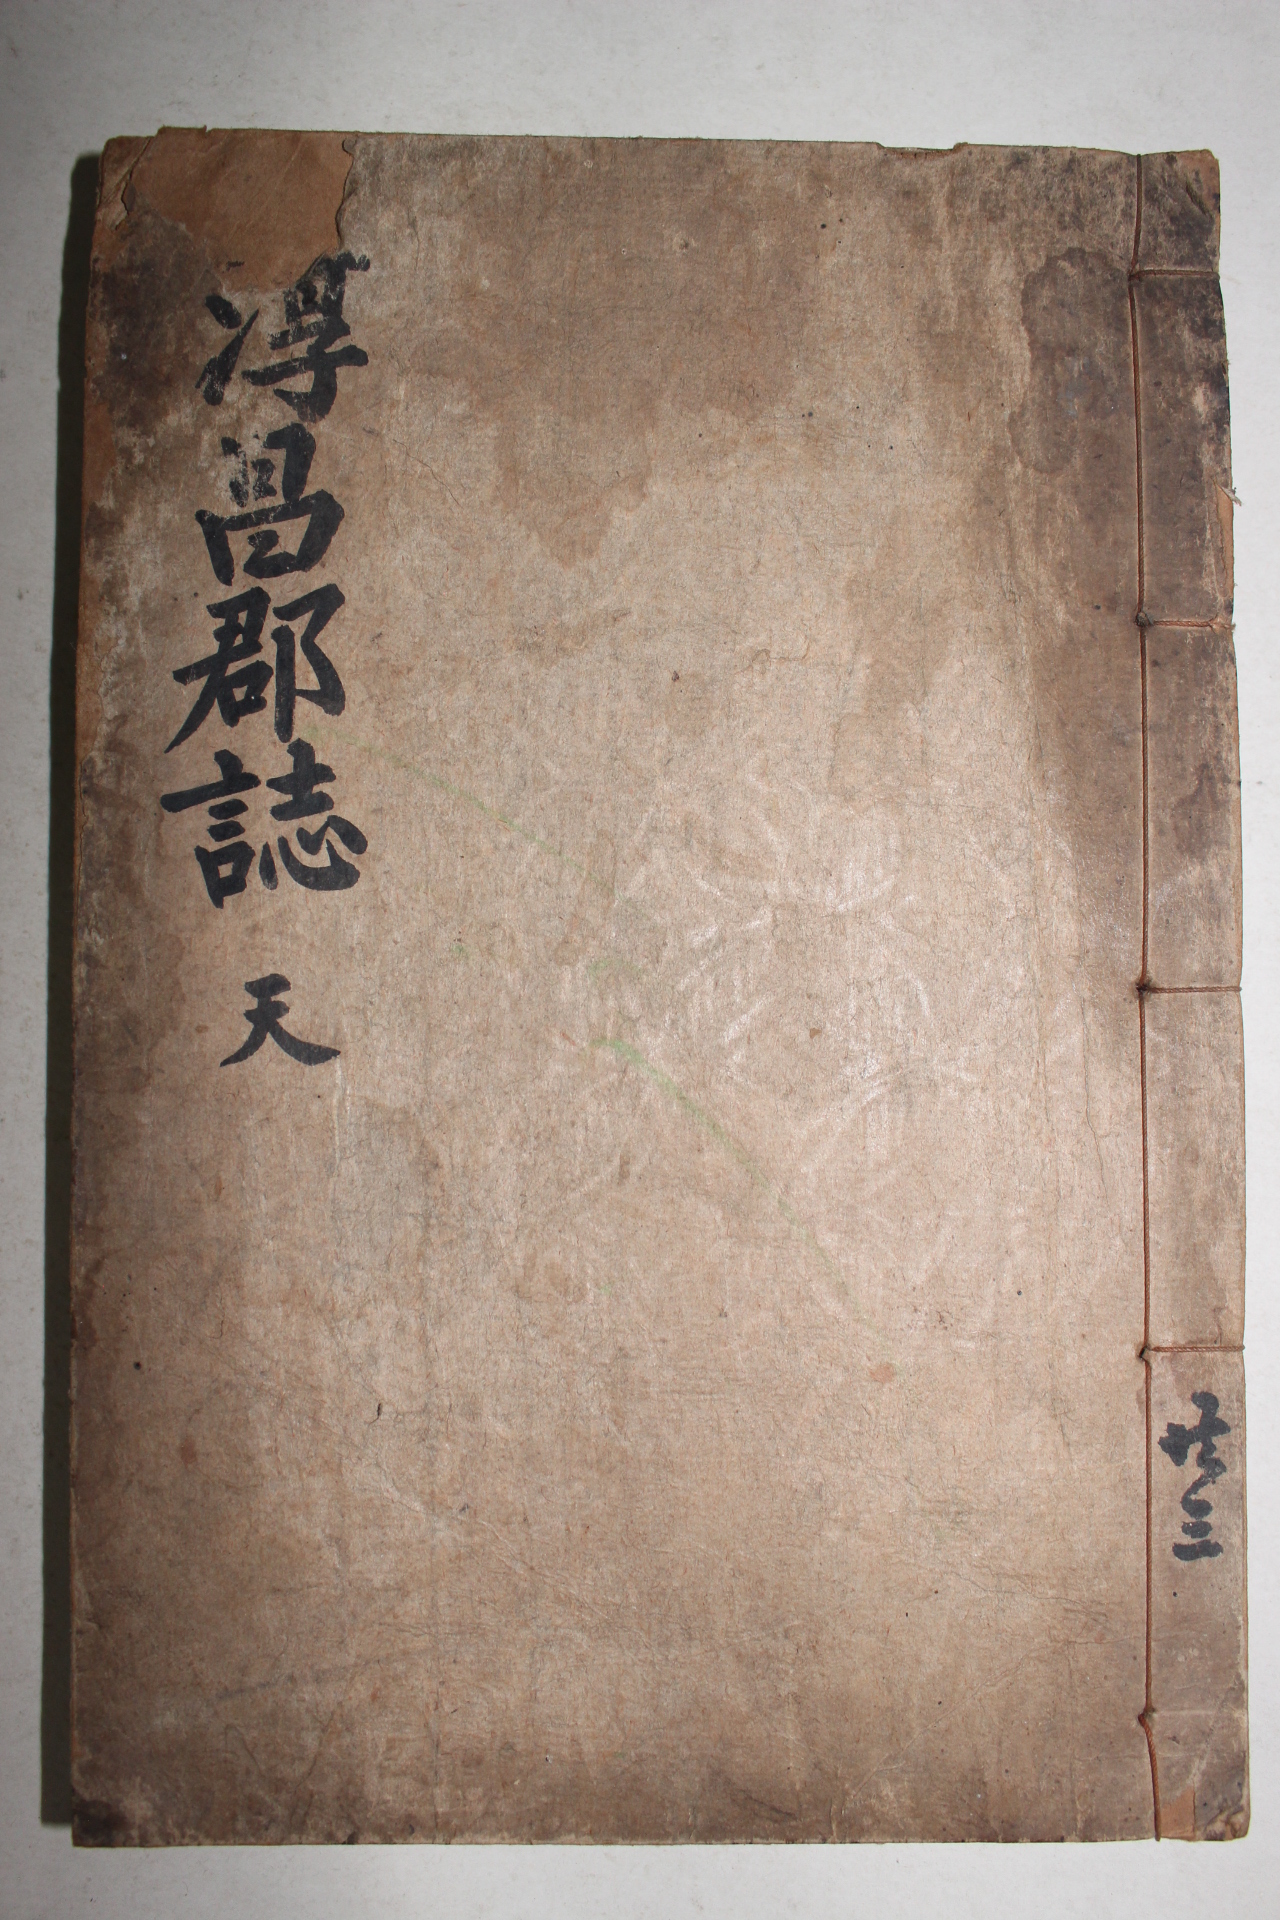 淳昌郡誌 天
共三